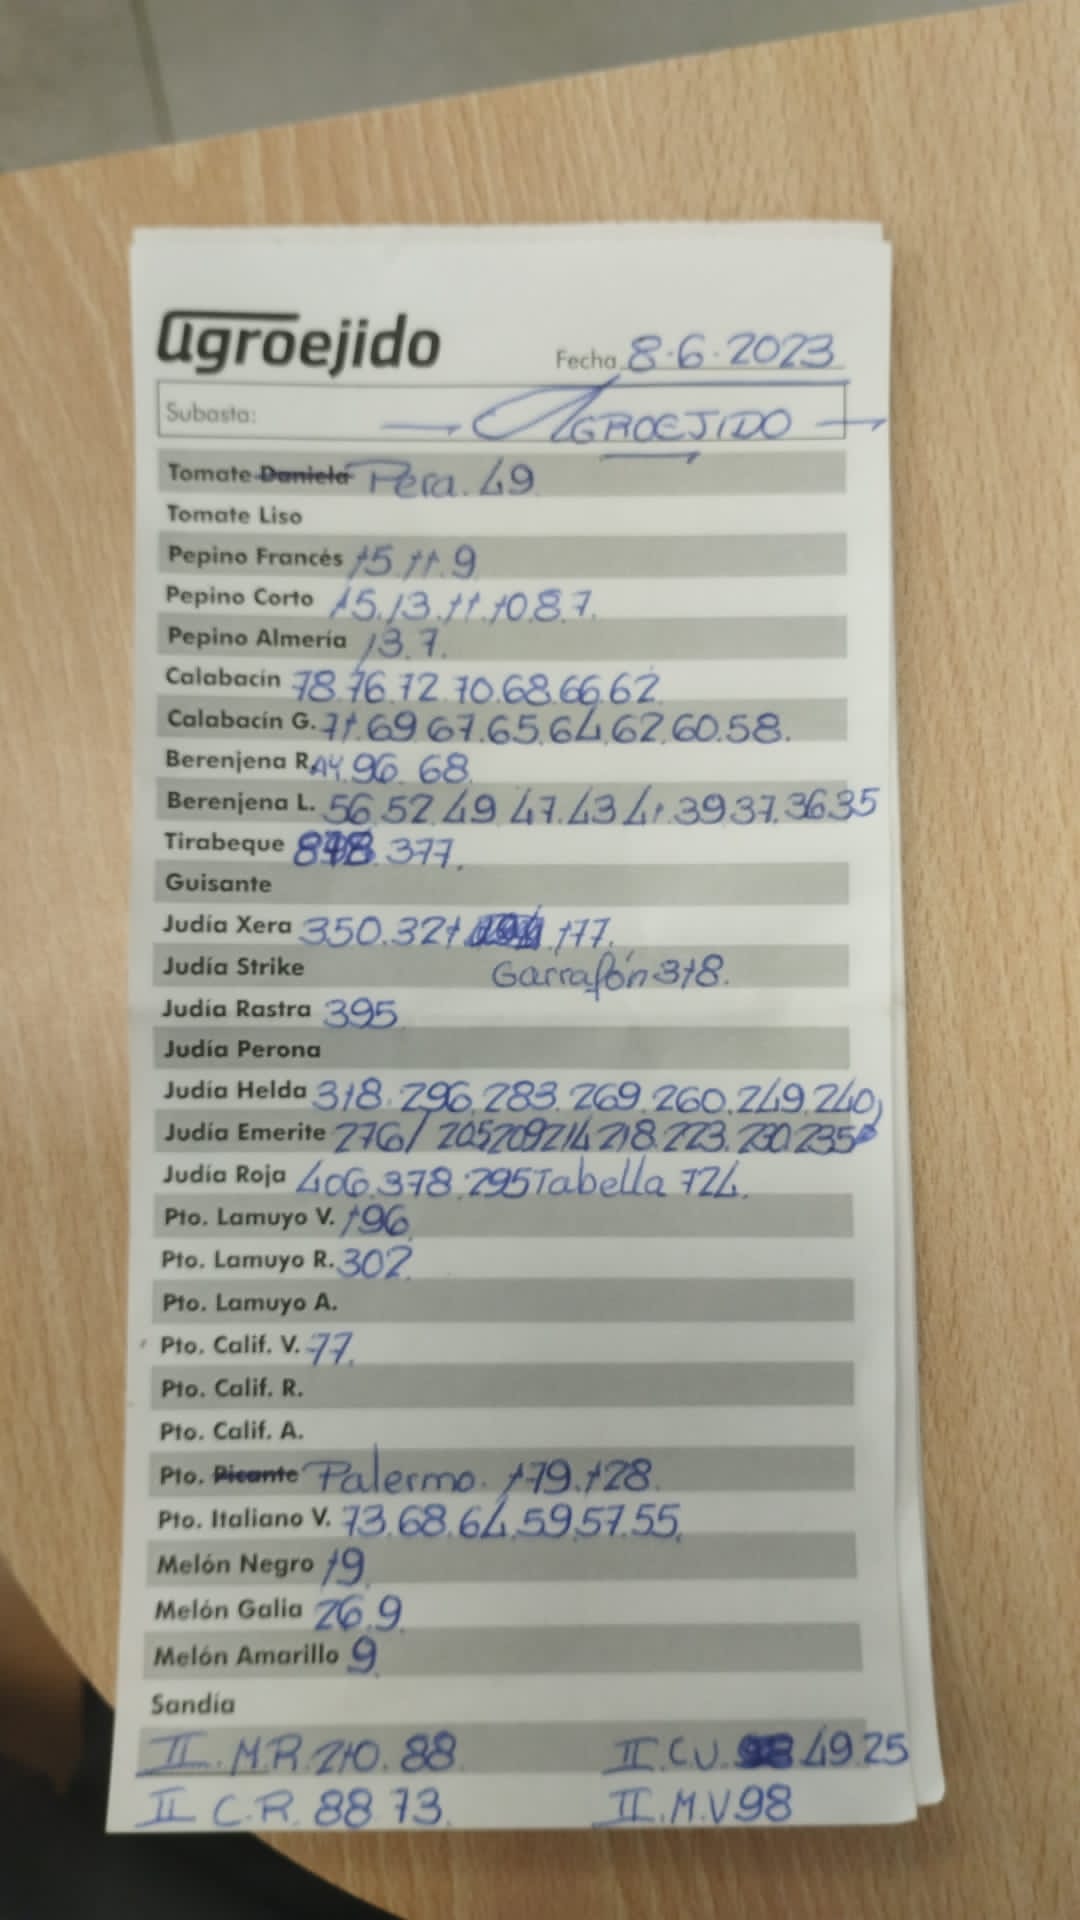 agroejido
Fecha 8.6.2023
Subasta: AGROEJIDO
Tomate Daniela Pera. 49
Tomate Liso
Pepino Francés 15.11.9
Pepino Corto 15.13.11.10.8.7.
Pepino Almería 13.7.
Calabacín 78.76.72.70.68.66.62.
Calabacín G. 71.69.67.65.64.62.60.58.
Berenjena R. 96.68.
Berenjena L. 56.52.49.47.43.41.39.37.36.35
Tirabeque 377.
Guisante
Judía Xera 350.321. 177.
Judía Strike Garrafón 318.
Judía Rastra 395
Judía Perona
Judía Helda 318.296.283.269.260.249.240
Judía Emerite 276/ 205 209 214 218.223.230.235
Judía Roja 406.378.295 Tabella 724.
Pto. Lamuyo V. 196
Pto. Lamuyo R. 302
Pto. Lamuyo A.
Pto. Calif. V. 77.
Pto. Calif. R.
Pto. Calif. A.
Pto. Picante Palermo. 179.128.
Pto. Italiano V. 73.68.64.59.57.55.
Melón Negro 19.
Melón Galia 26.9.
Melón Amarillo 9
Sandía
II. M.R. 210. 88 II. C.V. 49.25
II C.R. 88 73. II. M.V 98